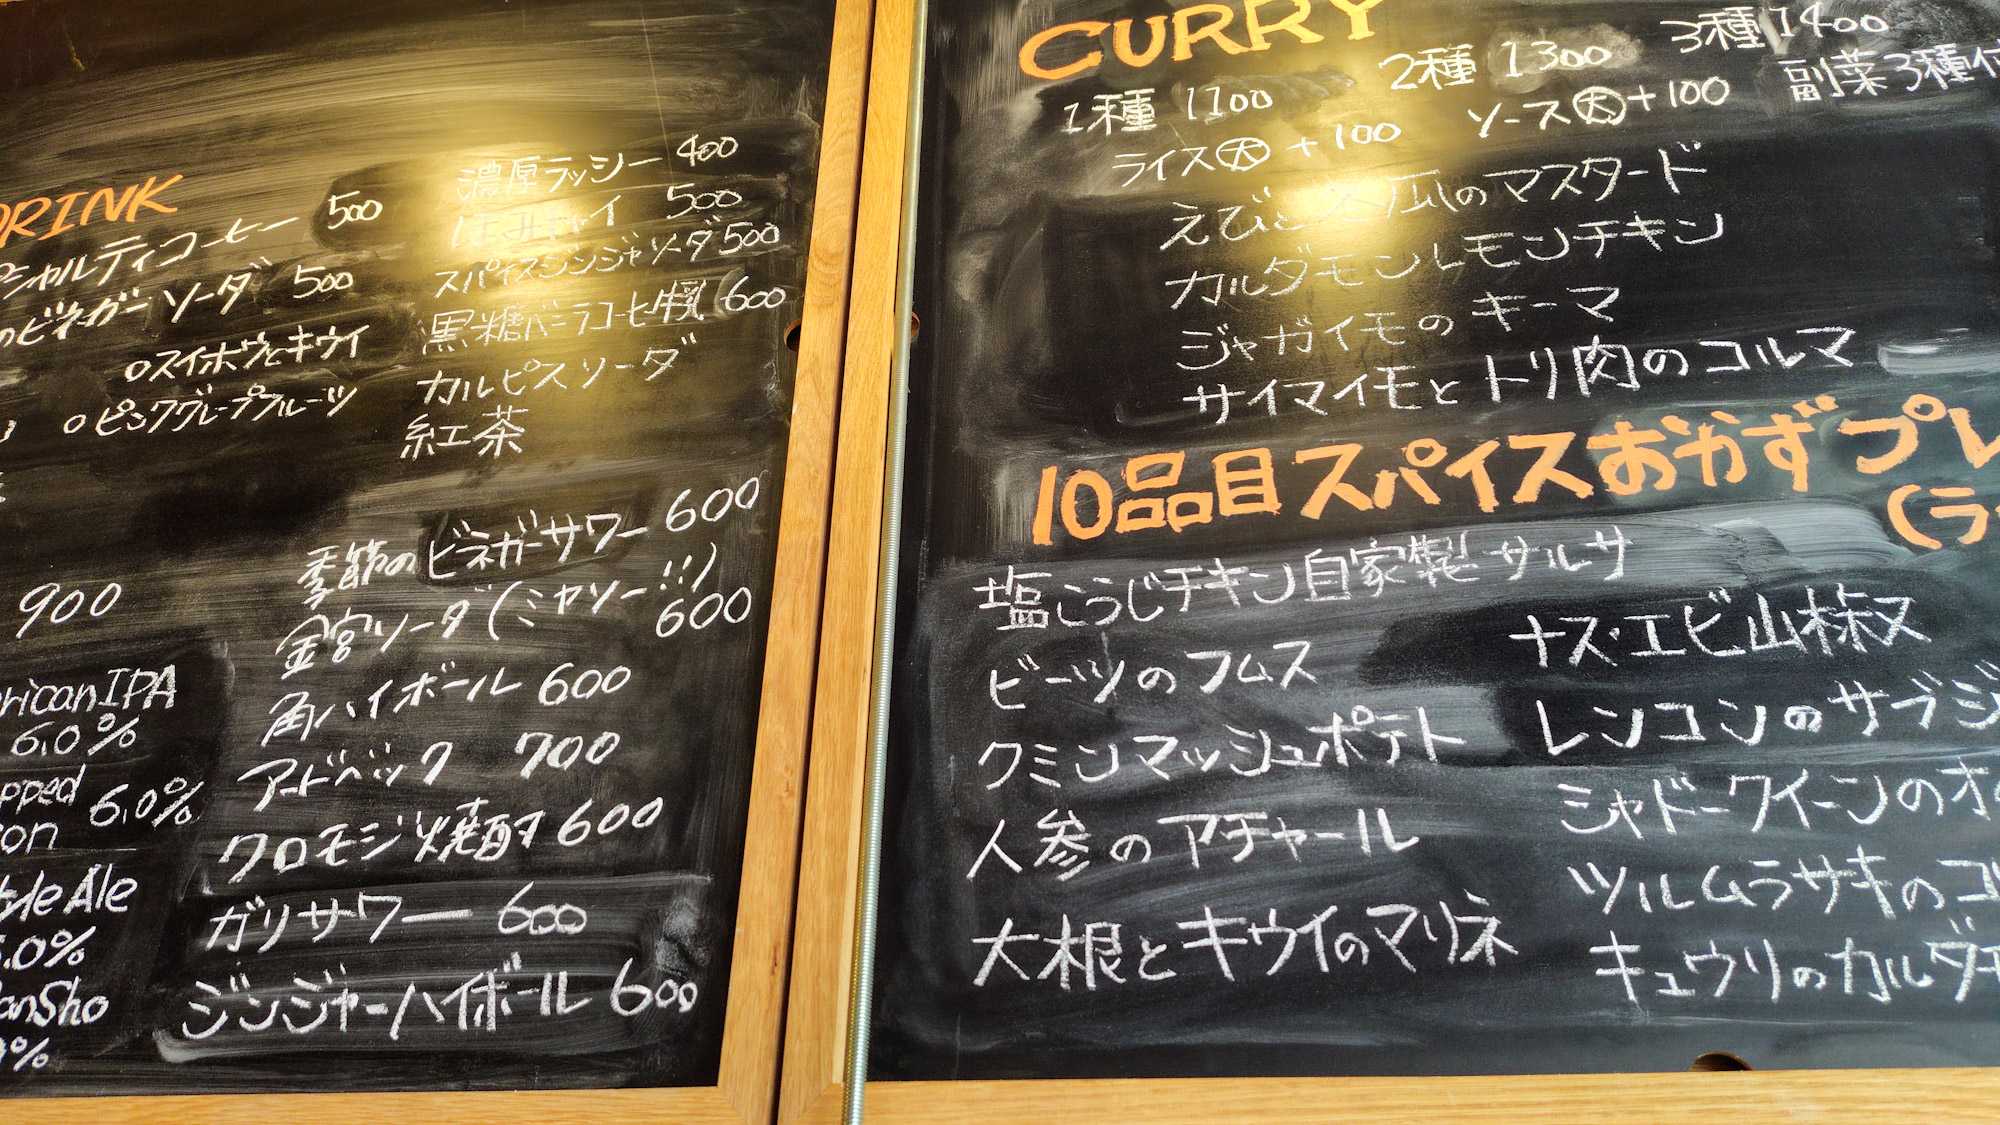 DRINK
シャルティコーヒー 500
のビネガーソーダ 500
○スイホウとキウイ
○ピンクグレープフルーツ
濃厚ラッシー 400
ほうみチャイ 500
スパイスジンジャソーダ 500
黒糖バニラコーヒー牛乳 600
カルピスソーダ
紅茶
900
ricanIPA
6.0%
pped
on 6.0%
yle Ale
.0%
anSho
%
季節のビネガーサワー 600
金宮ソーダ(ミヤソー!!)
600
角ハイボール 600
アードベック 700
クロモジ焼酎 600
ガリサワー 600
ジンジャーハイボール 600
CURRY
1種 1100 2種 1300 3種 1400
ライス大 +100 ソース大+100 副菜3種付
えびと冬瓜のマスタード
カルダモンレモンチキン
ジャガイモのキーマ
サイマイモとトリ肉のコルマ
10品目スパイスおかずプレ
(ラ
塩こうじチキン自家製サルサ
ビーツのフムス
クミンマッシュポテト
人参のアチャール
大根とキウイのマリネ
ナス・エビ山椒ス
レンコンのサブジ
シャドークイーンのオ
ツルムラサキのコ
キュウリのカルダモ